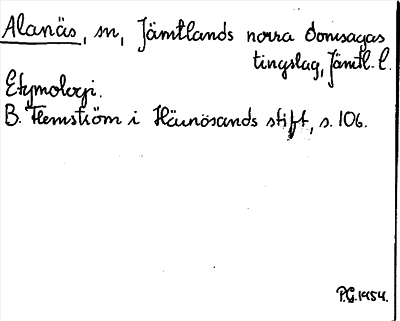 Alanäs, sn, Jämtlands norra domsagas
tingslag, Jämtl. l.
Etymologi.
B. Flemström i Härnösands stift, s. 106.
P.G. 1954.